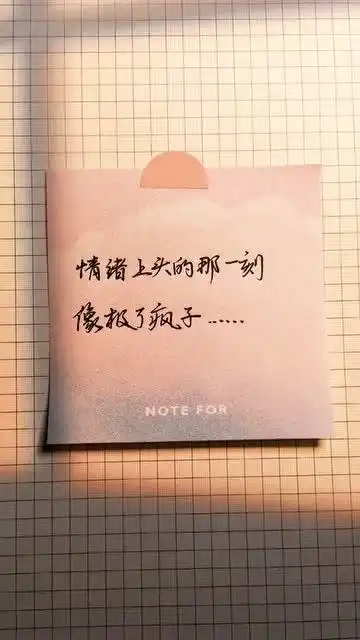 情绪上头的那一刻
像极了疯子......
NOTE FOR